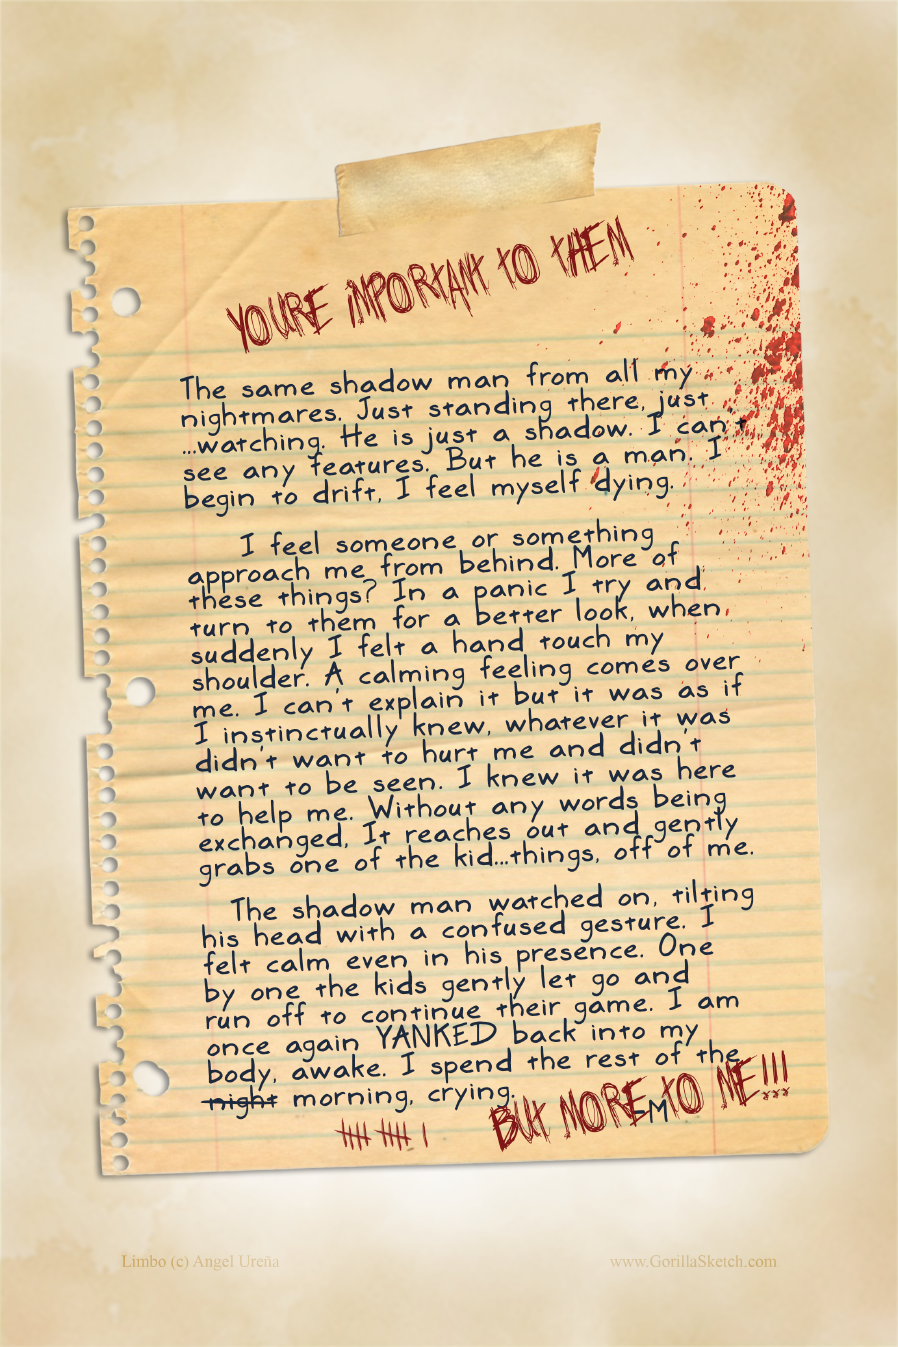 YOURE IMPORTANT TO THEM
The same shadow man from all my
nightmares. Just standing there, just
...watching. He is just a shadow. I can't
see any features. But he is a man. I
begin to drift, I feel myself dying.
I feel someone or something
approach me from behind. More of
these things? In a panic I try and
turn to them for a better look, when
suddenly I felt a hand touch my
shoulder. A calming feeling comes over
me. I can't explain it but it was as if
I instinctually knew, whatever it was
didn't want to hurt me and didn't
want to be seen. I knew it was here
to help me. Without any words being
exchanged, It reaches out and gently
grabs one of the kid...things, off of me.
The shadow man watched on, tilting
his head with a confused gesture. I
felt calm even in his presence. One
by one the kids gently let go and
run off to continue their game. I am
once again YANKED back into my
body, awake. I spend the rest of the
night morning, crying.
-M
BUT MORE TO ME!!!
Limbo (c) Angel Ureña
www.GorillaSketch.com